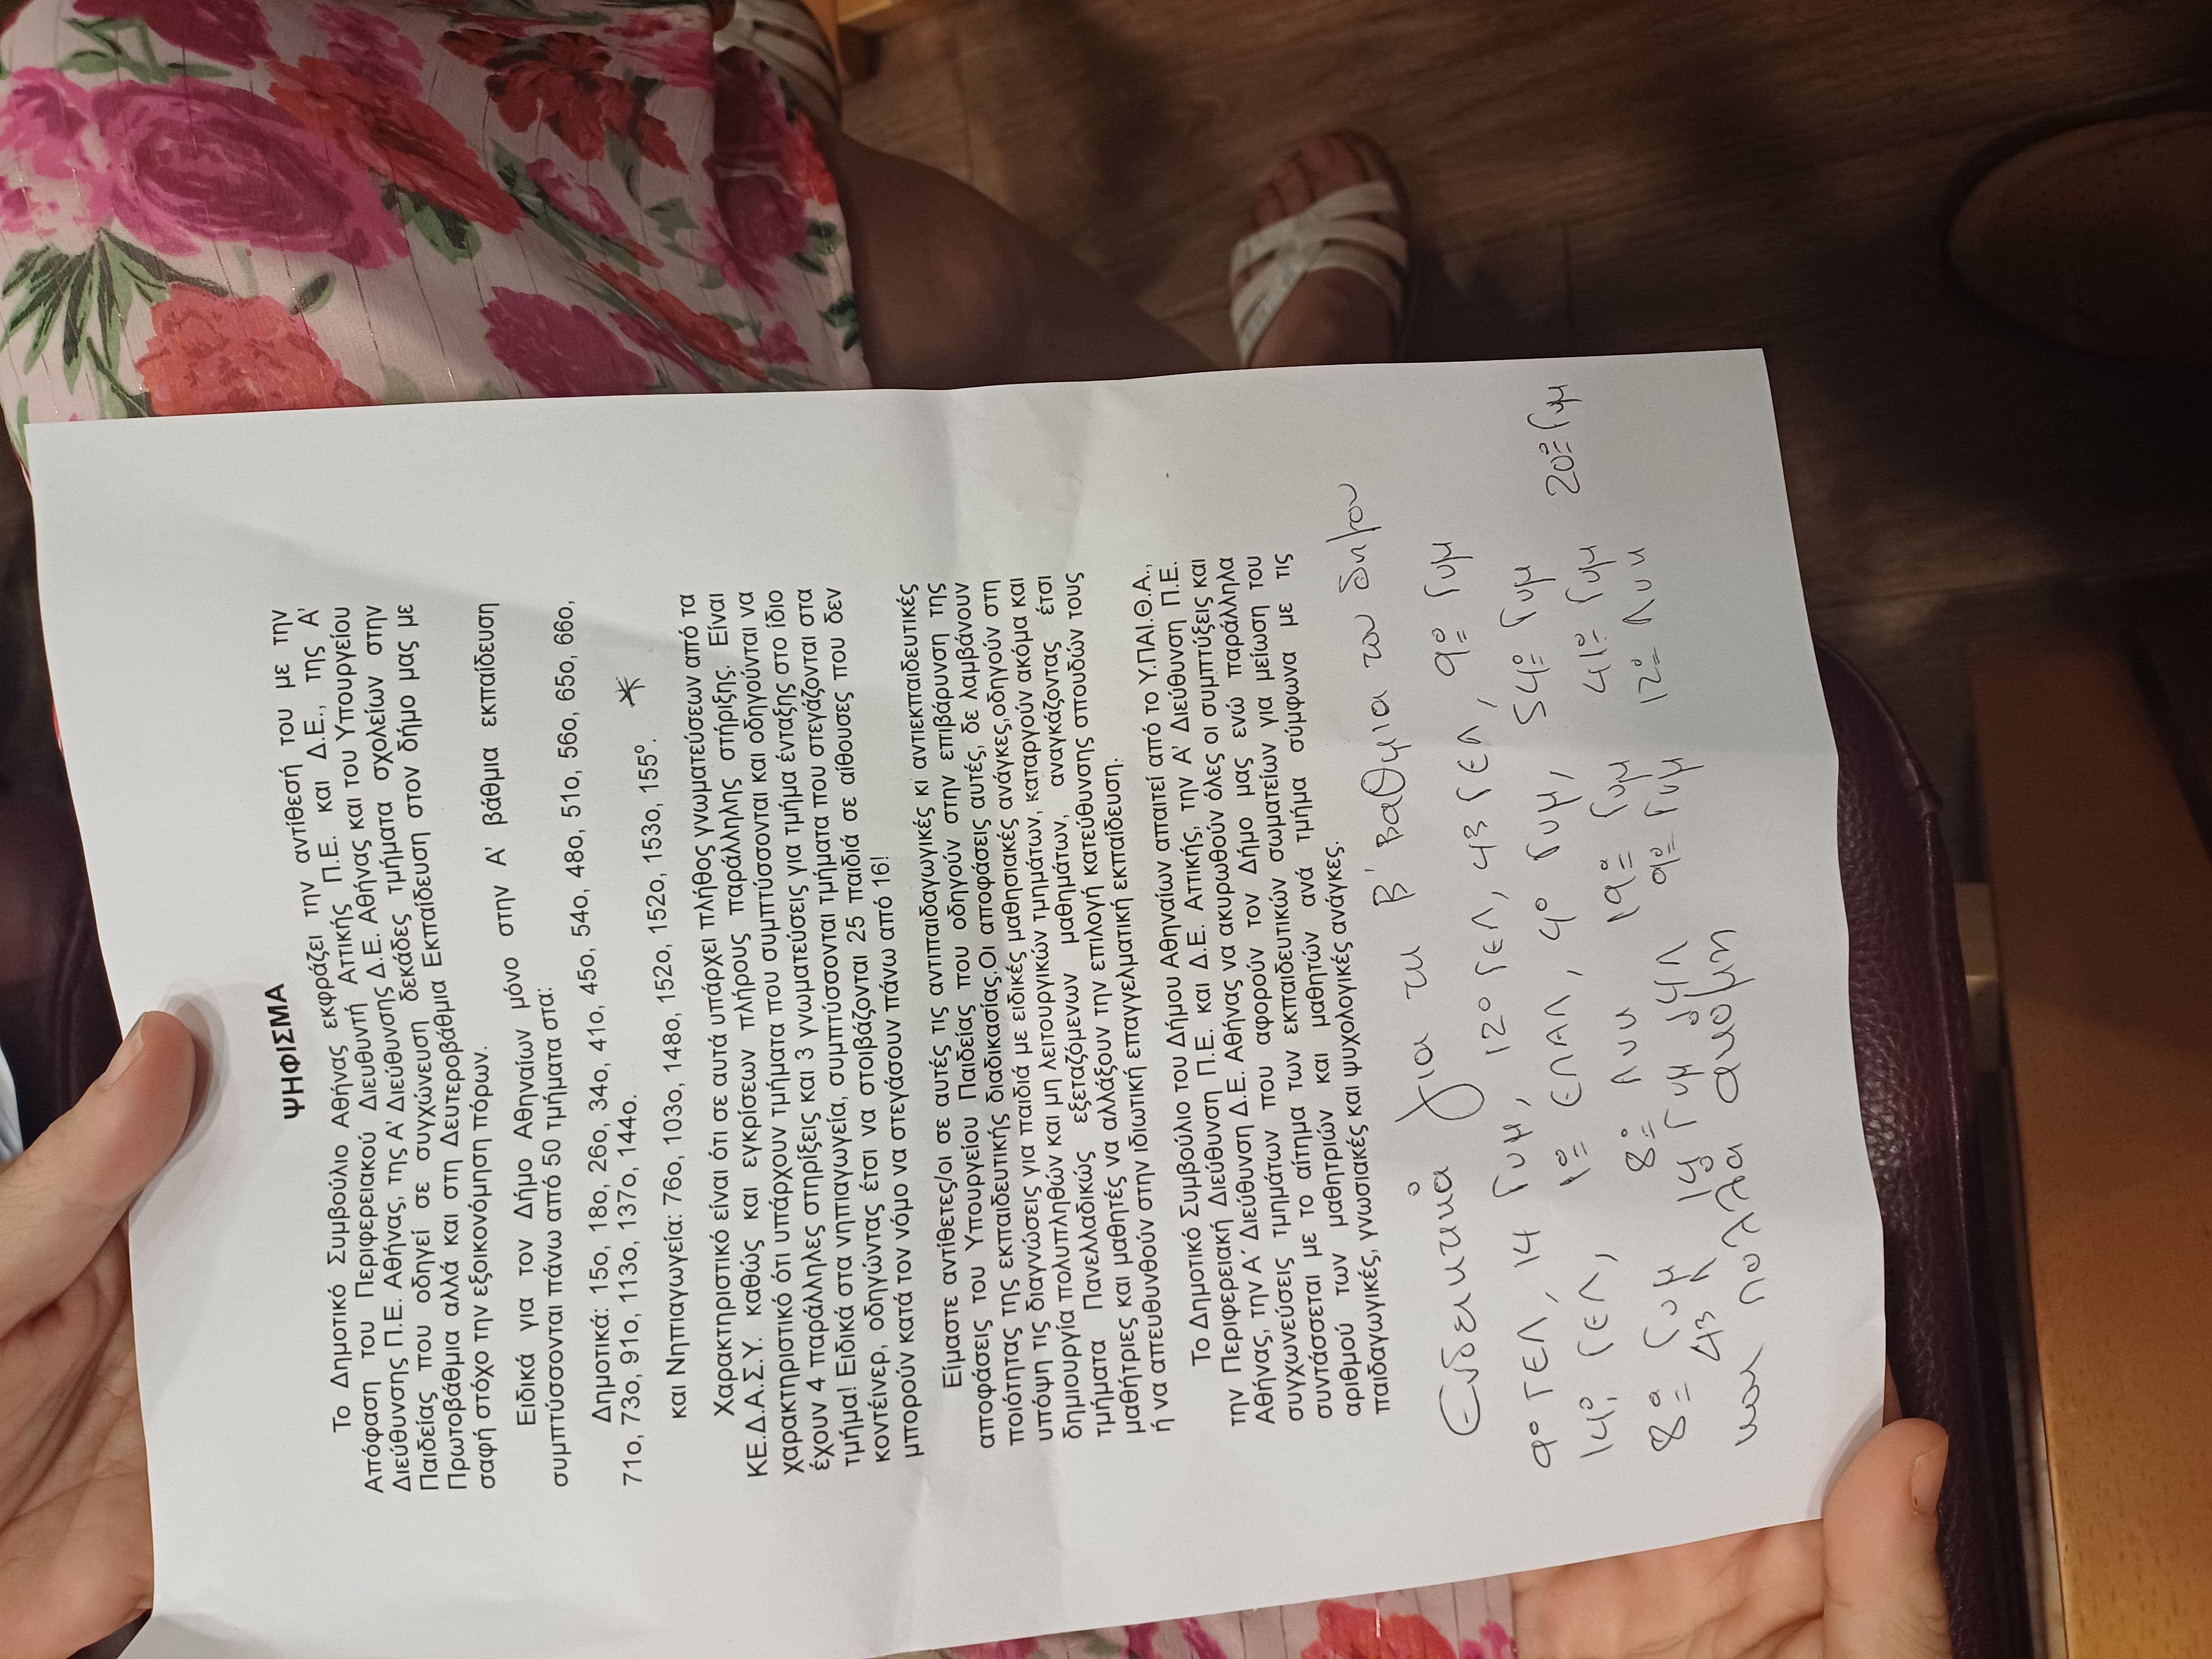 ΨΗΦΙΣΜΑ
Το Δημοτικό Συμβούλιο Αθήνας εκφράζει την αντίθεσή του με την
Απόφαση του Περιφερειακού Διευθυντή Αττικής Π.Ε. και Δ.Ε., της Α'
Διεύθυνσης Π.Ε. Αθήνας, της Α' Διεύθυνσης Δ.Ε. Αθήνας και του Υπουργείου
Παιδείας που οδηγεί σε συγχώνευση δεκάδες τμήματα σχολείων στην
Πρωτοβάθμια αλλά και στη Δευτεροβάθμια Εκπαίδευση στον δήμο μας με
σαφή στόχο την εξοικονόμηση πόρων.
Ειδικά για τον Δήμο Αθηναίων μόνο στην Α' βάθμια εκπαίδευση
συμπτύσσονται πάνω από 50 τμήματα στα:
Δημοτικά: 15ο, 18ο, 26ο, 34ο, 41ο, 45ο, 54ο, 48ο, 51ο, 56ο, 65ο, 66ο,
71ο, 73ο, 91ο, 113ο, 137ο, 144ο.
και Νηπιαγωγεία: 76ο, 103ο, 148ο, 152ο, 152ο, 153ο, 155ο. *
Χαρακτηριστικό είναι ότι σε αυτά υπάρχει πλήθος γνωματεύσεων από τα
ΚΕ.Δ.Α.Σ.Υ. καθώς και εγκρίσεων πλήρους παράλληλης στήριξης. Είναι
χαρακτηριστικό ότι υπάρχουν τμήματα που συμπτύσσονται και οδηγούνται να
έχουν 4 παράλληλες στηρίξεις και 3 γνωματεύσεις για τμήμα ένταξης στο ίδιο
τμήμα! Ειδικά στα νηπιαγωγεία, συμπτύσσονται τμήματα που στεγάζονται στα
κοντέινερ, οδηγώντας έτσι να στοιβάζονται 25 παιδιά σε αίθουσες που δεν
μπορούν κατά τον νόμο να στεγάσουν πάνω από 16!
Είμαστε αντίθετες/οι σε αυτές τις αντιπαιδαγωγικές κι αντιεκπαιδευτικές
αποφάσεις του Υπουργείου Παιδείας που οδηγούν στην επιβάρυνση της
ποιότητας της εκπαιδευτικής διαδικασίας.Οι αποφάσεις αυτές, δε λαμβάνουν
υπόψη τις διαγνώσεις για παιδιά με ειδικές μαθησιακές ανάγκες,οδηγούν στη
δημιουργία πολυπληθών και μη λειτουργικών τμημάτων, καταργούν ακόμα και
τμήματα Πανελλαδικώς εξεταζόμενων μαθημάτων, αναγκάζοντας έτσι
μαθήτριες και μαθητές να αλλάξουν την επιλογή κατεύθυνσης σπουδών τους
ή να απευθυνθούν στην ιδιωτική επαγγελματική εκπαίδευση.
Το Δημοτικό Συμβούλιο του Δήμου Αθηναίων απαιτεί από το Υ.ΠΑΙ.Θ.Α.,
την Περιφερειακή Διεύθυνση Π.Ε. και Δ.Ε. Αττικής, την Α' Διεύθυνση Π.Ε.
Αθήνας, την Α' Διεύθυνση Δ.Ε. Αθήνας να ακυρωθούν όλες οι συμπτύξεις και
συγχωνεύσεις τμημάτων που αφορούν τον Δήμο μας ενώ παράλληλα
συντάσσεται με το αίτημα των εκπαιδευτικών σωματείων για μείωση του
αριθμού των μαθητριών και μαθητών ανά τμήμα σύμφωνα με τις
παιδαγωγικές, γνωσιακές και ψυχολογικές ανάγκες.
Ενδεικτικά για τη Β' Βάθμια του δήμου
9ο ΓΕΛ, 14 Γυμ, 12ο ΓΕΛ, 43 ΓΕΛ, 9ο Γυμ
14ο ΓΕΛ, 1ο ΕΠΑΛ, 4ο Γυμ, 54ο Γυμ 20ο Γυμ
8ο Γυμ 8ο Λυκ 19ο Γυμ 41ο Γυμ
43 Λ 14ο Γυμ 9ο Γυμ 12ο Λυκ
και πολλά ακόμη